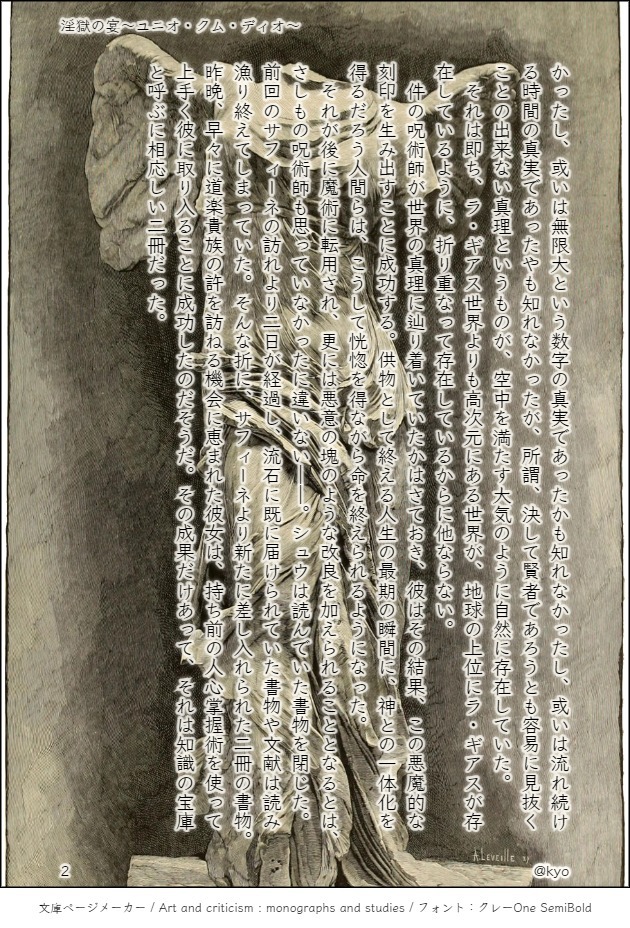 淫獄の宴~ユニオ・クム・ディオ~
かったし、或いは無限大という数字の真実であったかも知れなかったし、或いは流れ続け
る時間の真実であったやも知れなかったが、所謂、決して賢者であろうとも容易に見抜く
ことの出来ない真理というものが、空中を満たす大気のように自然に存在していた。
それは即ち、ラ・ギアス世界よりも高次元にある世界が、地球の上位にラ・ギアスが存
在しているように、折り重なって存在しているからに他ならない。
件の呪術師が世界の真理に辿り着いていたかはさておき、彼はその結果、この悪魔的な
刻印を生み出すことに成功する。供物として終える人生の最期の瞬間に、神との一体化を
得るだろう人間らは、こうして恍惚を得ながら命を終えられるようになった。
それが後に魔術に転用され、更には悪意の塊のような改良を加えられることとなるとは、
さしもの呪術師も思っていなかったに違いない――。シュウは読んでいた書物を閉じた。
前回のサフィーネの訪れより二日が経過し、流石に既に届けられていた書物や文献は読み
漁り終えてしまっていた。そんな折に、サフィーネより新たに差し入れられた二冊の書物。
昨晩、早々に道楽貴族の許を訪ねる機会に恵まれた彼女は、持ち前の人心掌握術を使って
上手く彼に取り入ることに成功したのだそうだ。その成果だけあって、それは知識の宝庫
と呼ぶに相応しい二冊だった。
A LEVEILLE
2
@kyo
文庫ページメーカー / Art and criticism : monographs and studies / フォント：クレーOne SemiBold